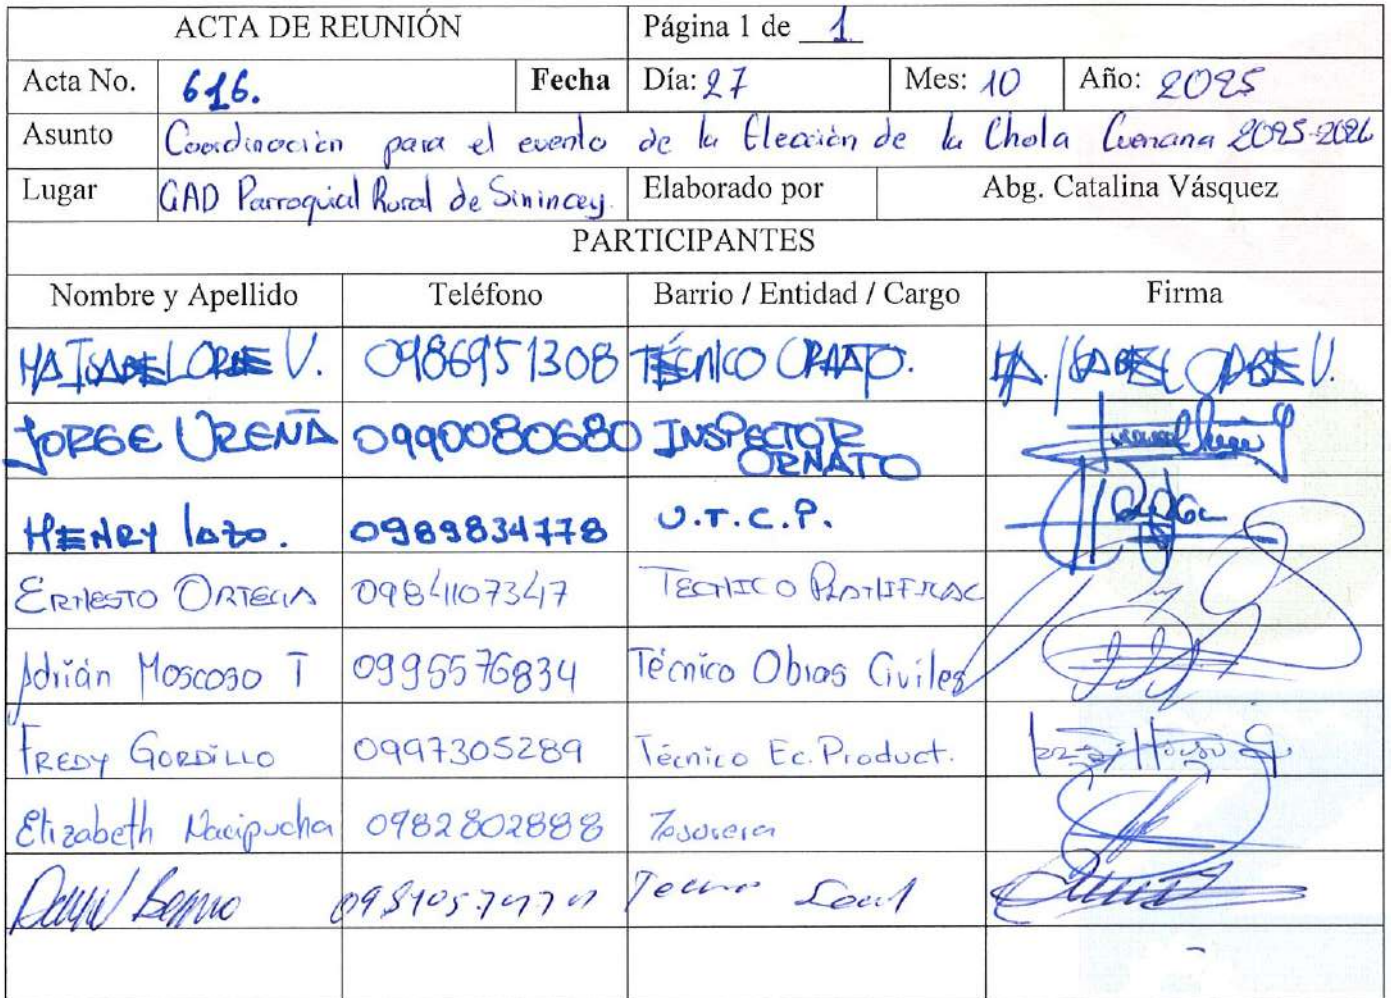 ACTA DE REUNIÓN Página 1 de 1
Acta No. 616. Fecha Día: 27 Mes: 10 Año: 2025
Asunto Coordinación para el evento de la Elección de la Chola Cuencana 2025-2026
Lugar GAD Parroquial Rural de Sinincay. Elaborado por Abg. Catalina Vásquez
PARTICIPANTES
Nombre y Apellido Teléfono Barrio / Entidad / Cargo Firma
MA ISABEL ORBE V. 0986951308 TÉCNICO ORNATO. MA. ISABEL ORBE V.
JORGE UREÑA 0990080680 INSPECTOR
ORNATO
HENRY lazo. 0989834778 U.T.C.P.
ERNESTO ORTEGA 0984107347 TECNICO
Adrián Moscoso T 0995576834 Técnico Obras Civiles
FREDY GORDILLO 0997305289 Técnico Ec. Product.
Elizabeth Nacipucha 0982802888 Tesorera